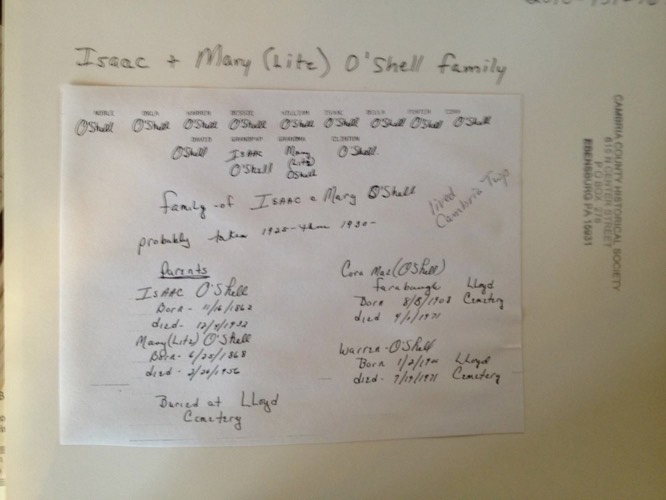 Isaac + Mary (Litz) O'Shell family
WILLIAM ISAAC CORA
O'Shell O'Shell O'Shell O'Shell O'Shell O'Shell O'Shell O'Shell O'Shell
DAVID GRANDPAP GRANDMA CLINTON
O'Shell ISAAC O'Shell Mary (Litz) O'Shell O'Shell
family of ISAAC & Mary O'Shell
lived Cambria Twp
probably taken 1925 thru 1930-
Parents
ISAAC O'Shell
Born - 11/16/1862
died - 12/4/1932
Mary (Litz) O'Shell
Born - 6/25/1868
died - 2/20/1956
Buried at LLoyd
Cemetery
Cora Mae (O'Shell)
Farabaugh
Born 8/8/1908
died 9/1/1971
LLoyd
Cemetery
Warren - O'Shell
Born 1/2/
died - 7/19/1971
LLoyd
Cemetery
CAMBRIA COUNTY HISTORICAL SOCIETY
615 N CENTER STREET
P O BOX 278
EBENSBURG PA 15931